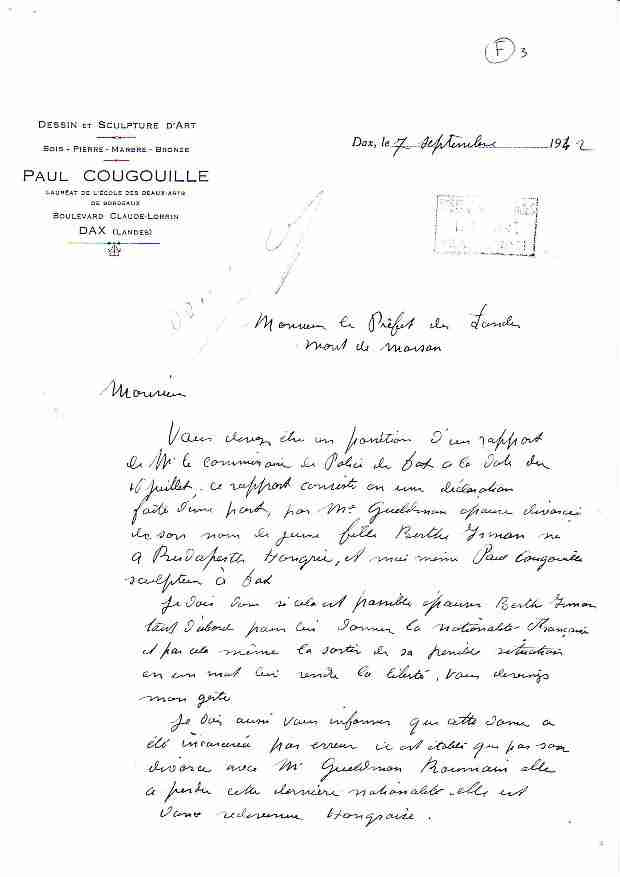 F 3
DESSIN ET SCULPTURE D'ART
BOIS - PIERRE - MARBRE - BRONZE
PAUL COUGOUILLE
LAURÉAT DE L'ÉCOLE DES BEAUX-ARTS
DE BORDEAUX
BOULEVARD CLAUDE-LORRIN
DAX (LANDES)
Dax, le 7 septembre 1942
Monsieur le Préfet des Landes
Mont de Marsan
Monsieur
Vous devez être en position d'un rapport
de Mr le commissaire de Police de Dax a la date du
16 juillet, ce rapport consiste en une déclaration
faite d'une part, par Me Gueldman épouse divorcée
de son nom de jeune fille Berthe Isman né
a Budapesth Hongrie, et moi même Paul Cougouille
sculpteur a Dax
Je dois donc si cela est possible épouser Berth Isman
tout d'abord pour lui donner la nationalité Française
et par cela même la sortir de sa pénible situation
en un mot lui rendre la liberté, vous devinez
mon geste
Je dois aussi vous informer que cette dame a
été incarcérée par erreur il est établi que par son
divorce avec Mr Gueldman Roumain elle
a perdu cette dernière nationalité elle est
donc redevenue Hongroise.